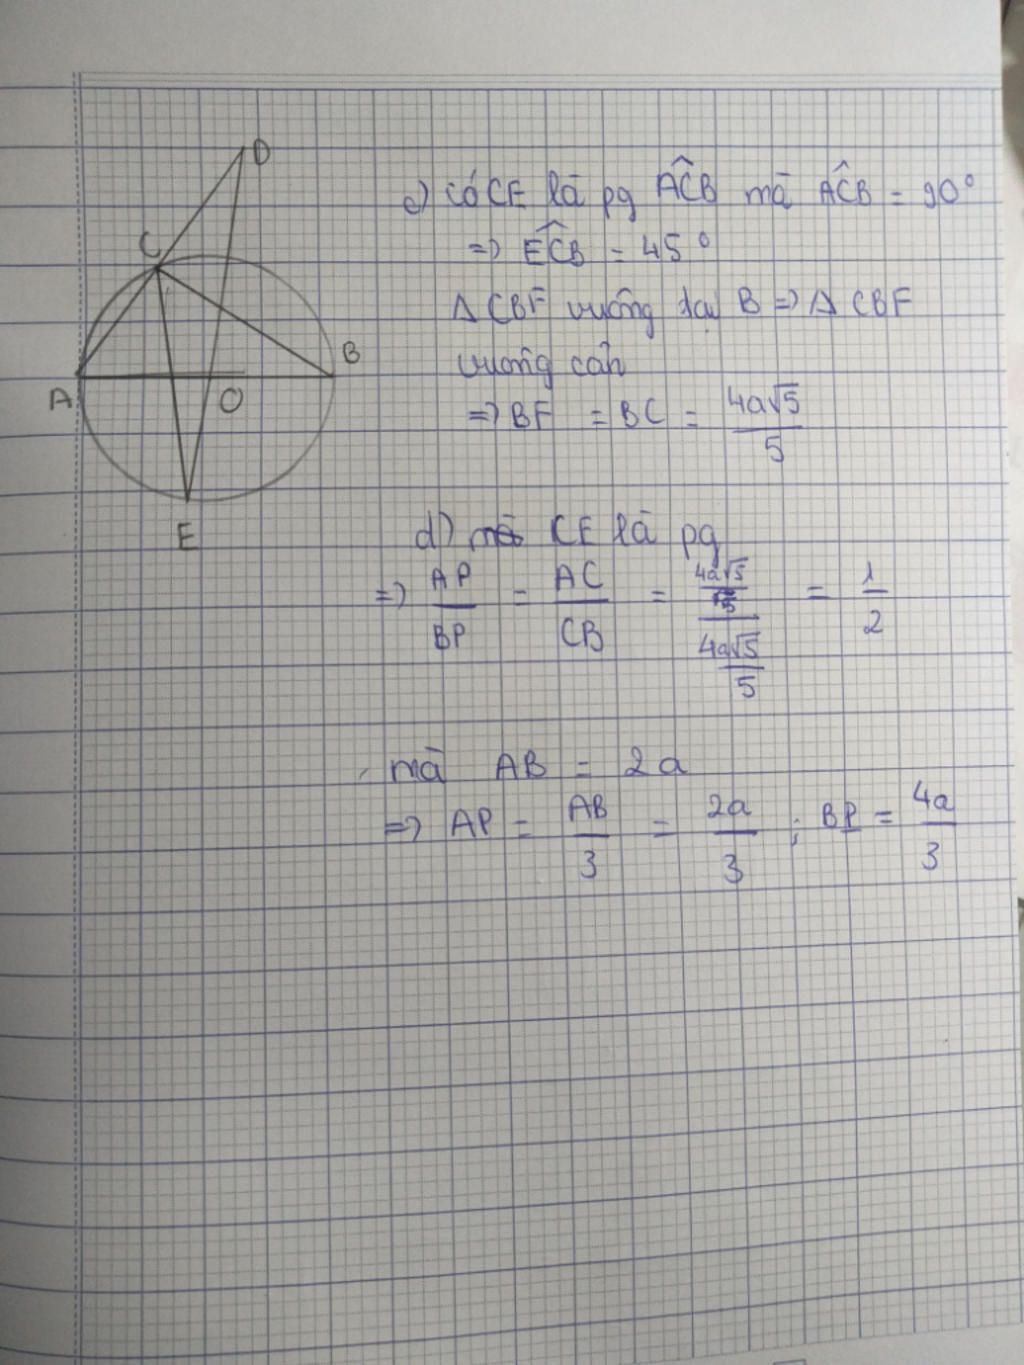 D
C
B
A
O
E
c) Có CE là pg ACB mà ACB = 90°
=> ECB = 45°
Δ CBF vuông tại B => Δ CBF
vuông cân
=> BF = BC = 4a√5/5
d) CE là pg
=> AP/BP = AC/CB = = 1/2
mà AB = 2a
=> AP = AB/3 = 2a/3 ; BP = 4a/3